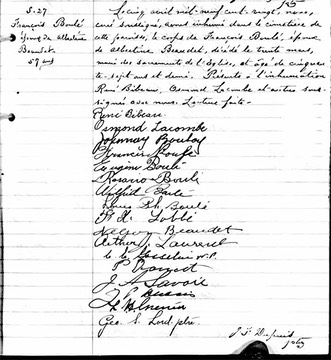 S-27
François Boulé
époux de Albertine
Beaudet
57 ans
Le cinq avril mil-neuf cent-vingt, nous,
curé soussigné, avons inhumé dans le cimetière de
cette paroisse, le corps de François Boulé, époux
de Albertine Beaudet, décédé le trente mars,
muni des sacrements de l'Eglise, et âgé de cinquan-
te-sept ans et demi. Présents à l'inhumation
René Bibeau, Osmond Lacombe et autres sous-
signés avec nous. Lecture faite.
René Bibeau
Osmond Lacombe
Johnney Boulay
Francis Boulé
Eugène Boulé
Rosario Boulé
Wilfrid
Louis Ph. Boulé
Beaudet
Arthur J. Laurent
Gosselin N.P.
J. A. Savoie
Geo. S. Lord ptre
J. F. Dupuis
ptre